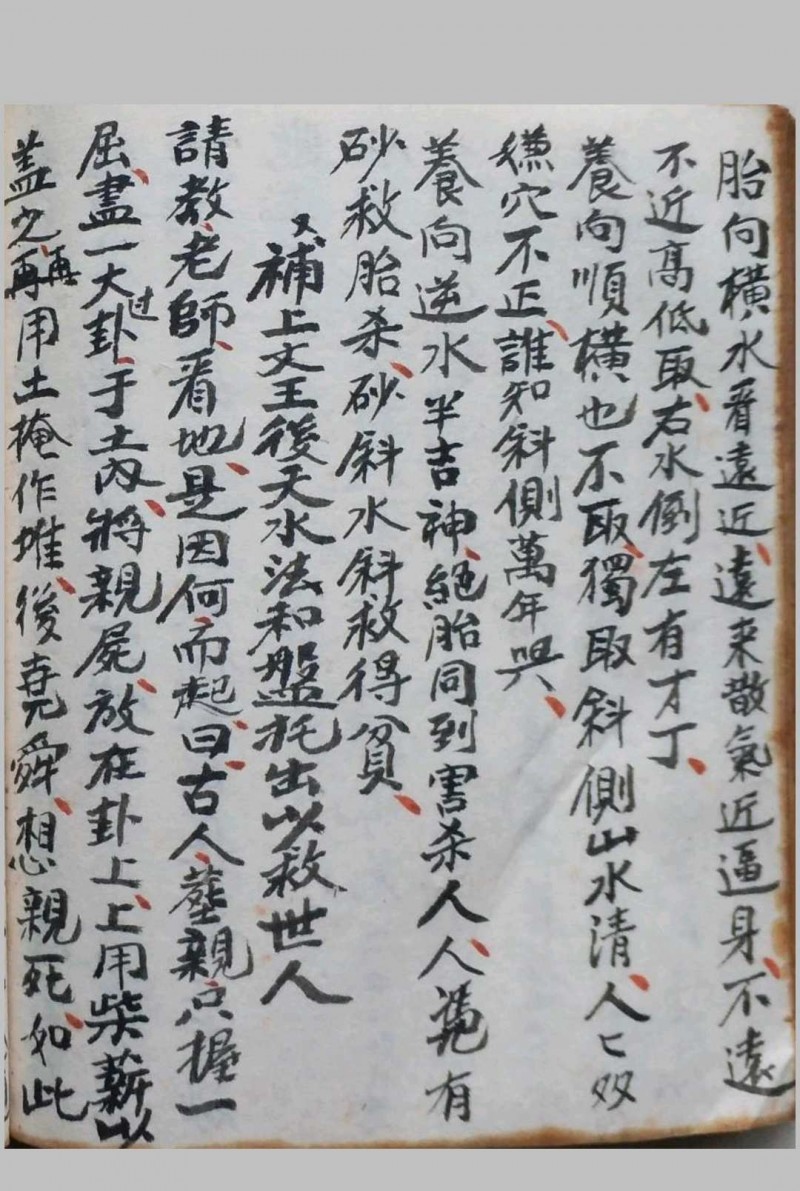 胎向橫水看遠近、遠来散氣近逼身、不遠
不近高低取、右水倒左有才丁、
養向順橫也不取、獨取斜側山水清、人匕双
穴不正、誰知斜側萬年興、
養向逆水半吉神、絕胎同到害杀人、人 有
砂救胎杀、砂斜水斜救得貧、
又補上文王後天水法和盤托出以救世人
請教、老師、看地、是因何、而起、曰、古人、塟親只握一
屈、盡一大卦、过于土內、將親屍、放在卦上、上用柴薪以
盖之、再再用土掩作堆、後堯舜、想親死、如此